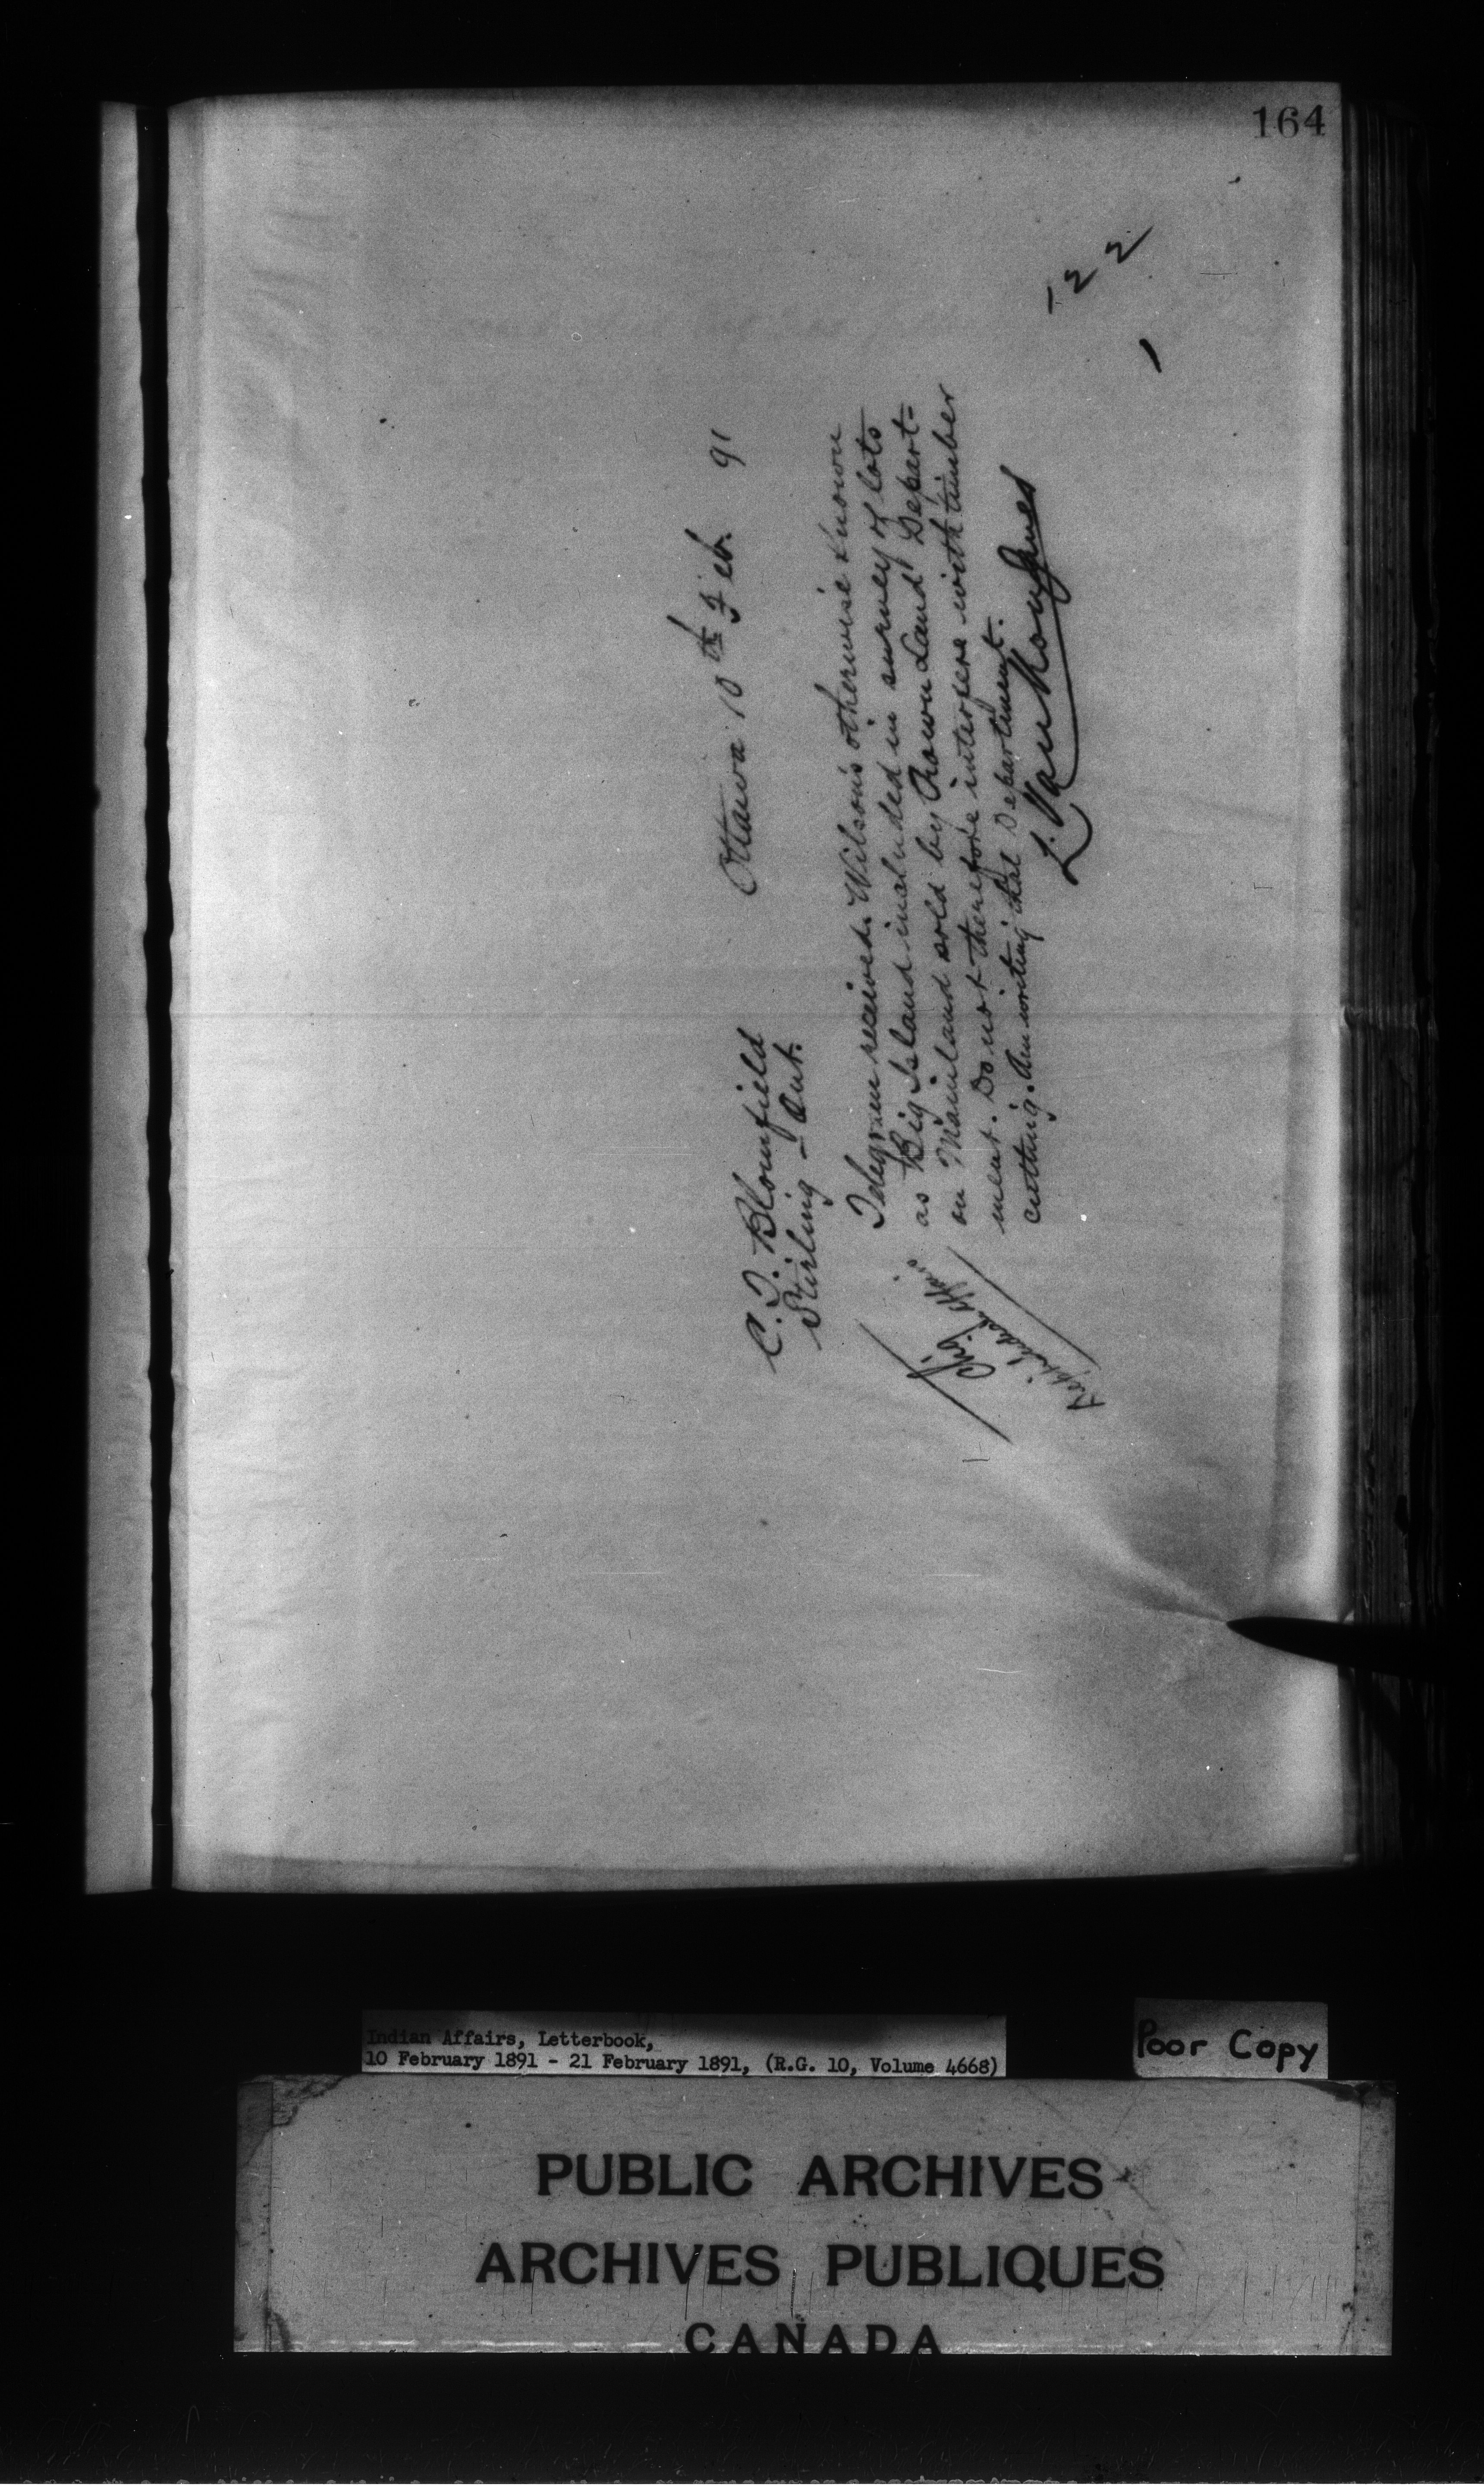 164
Ottawa 10th Feb. 91
C. T. Blomfield
Stirling - Ont.
Telegram received. Wilson's otherwise known
as Big Island included in survey of lots
on Mainland sold by Crown Land Depart-
ment. Do not therefore interfere with timber
cutting. Am writing that Department.
L. Vankoughnet
Chg.
Dept Indian Affairs
122
Indian Affairs, Letterbook,
10 February 1891 - 21 February 1891, (R.G. 10, Volume 4668)
Poor Copy
PUBLIC ARCHIVES
ARCHIVES PUBLIQUES
CANADA